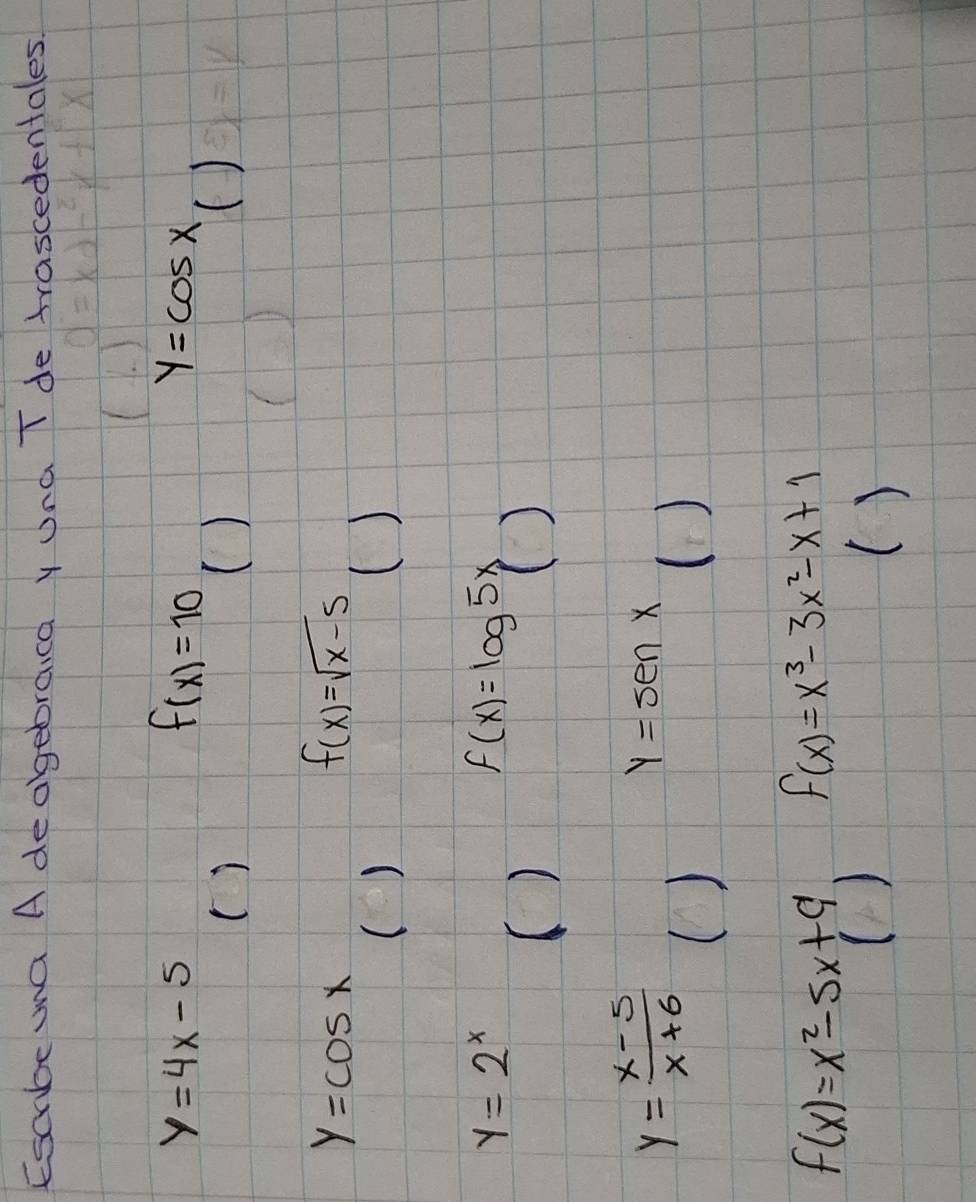 Escribe una A de algebraica y una T de trascedentales.
y = 4x - 5 ( ) f(x) = 10 ( ) y = cos x ( )
y = cos x ( ) f(x) = √x - 5 ( )
y = 2ˣ ( ) f(x) = log 5x ( )
y = x - 5 / x + 6 ( ) y = sen x ( )
f(x) = x² - 5x + 9 ( ) f(x) = x³ - 3x² - x + 1 ( )